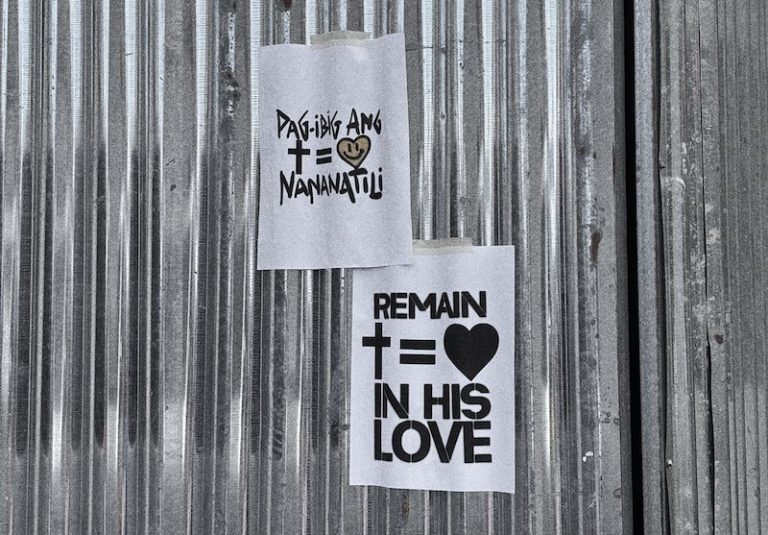 PAG-iBiG ANG
✝ = ♥
NANANATiLi
REMAIN
✝ = ♥
IN HIS
LOVE